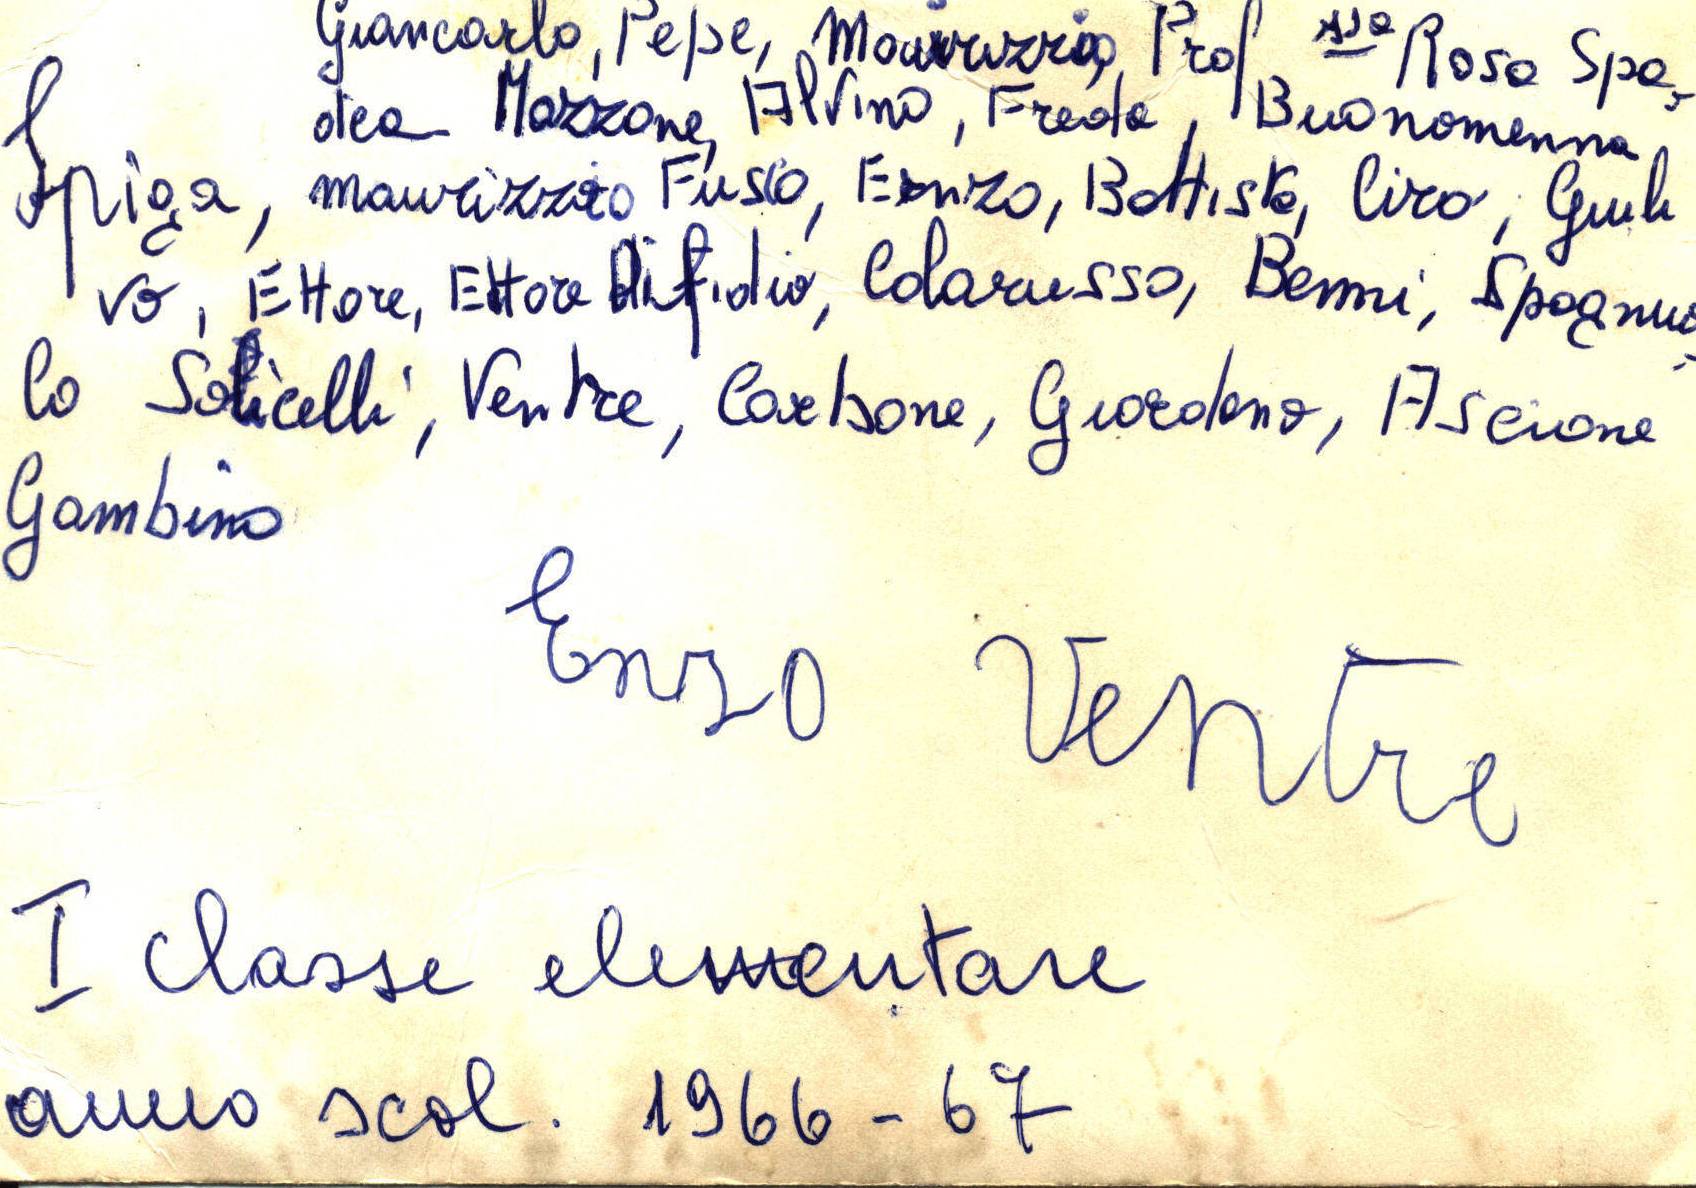 Giancarlo, Pepe, Maurizzio, Prof.ssa Rosa Spa-
dea Mazzone, Alvino, Freda, Buonomenna
Spiga, maurizzio Fusco, Enzo, Battista, Ciro, Giuli
vo, Ettore, Ettore Difidio, Colarusso, Benni, Spagnuo-
lo Solicelli, Ventre, Carbone, Giordano, Ascione
Gambino
Enzo Ventre
I classe elementare
anno scol. 1966-67